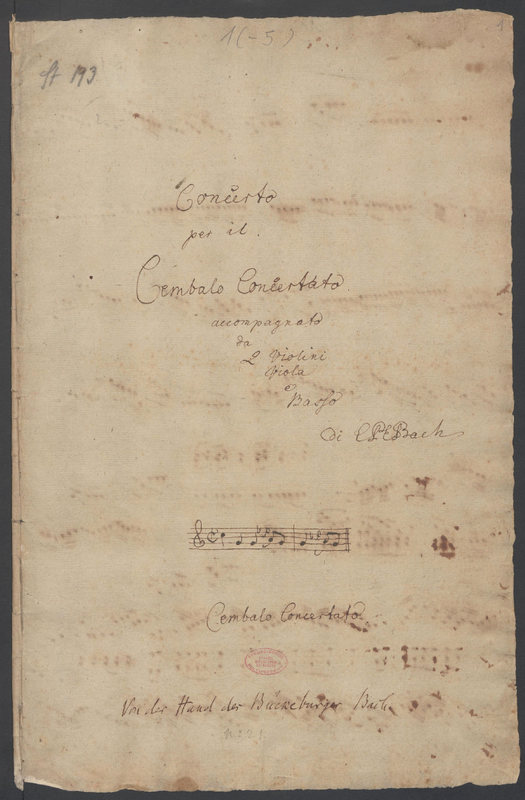 1 (-5)
1
A 193
Concerto
per il.
Cembalo Concertato.
accompagnato
da
2 Violini
Viola
e
Basso
di CPEBach
Cembalo Concertato.
Von der Hand der Bückeburger Bach.